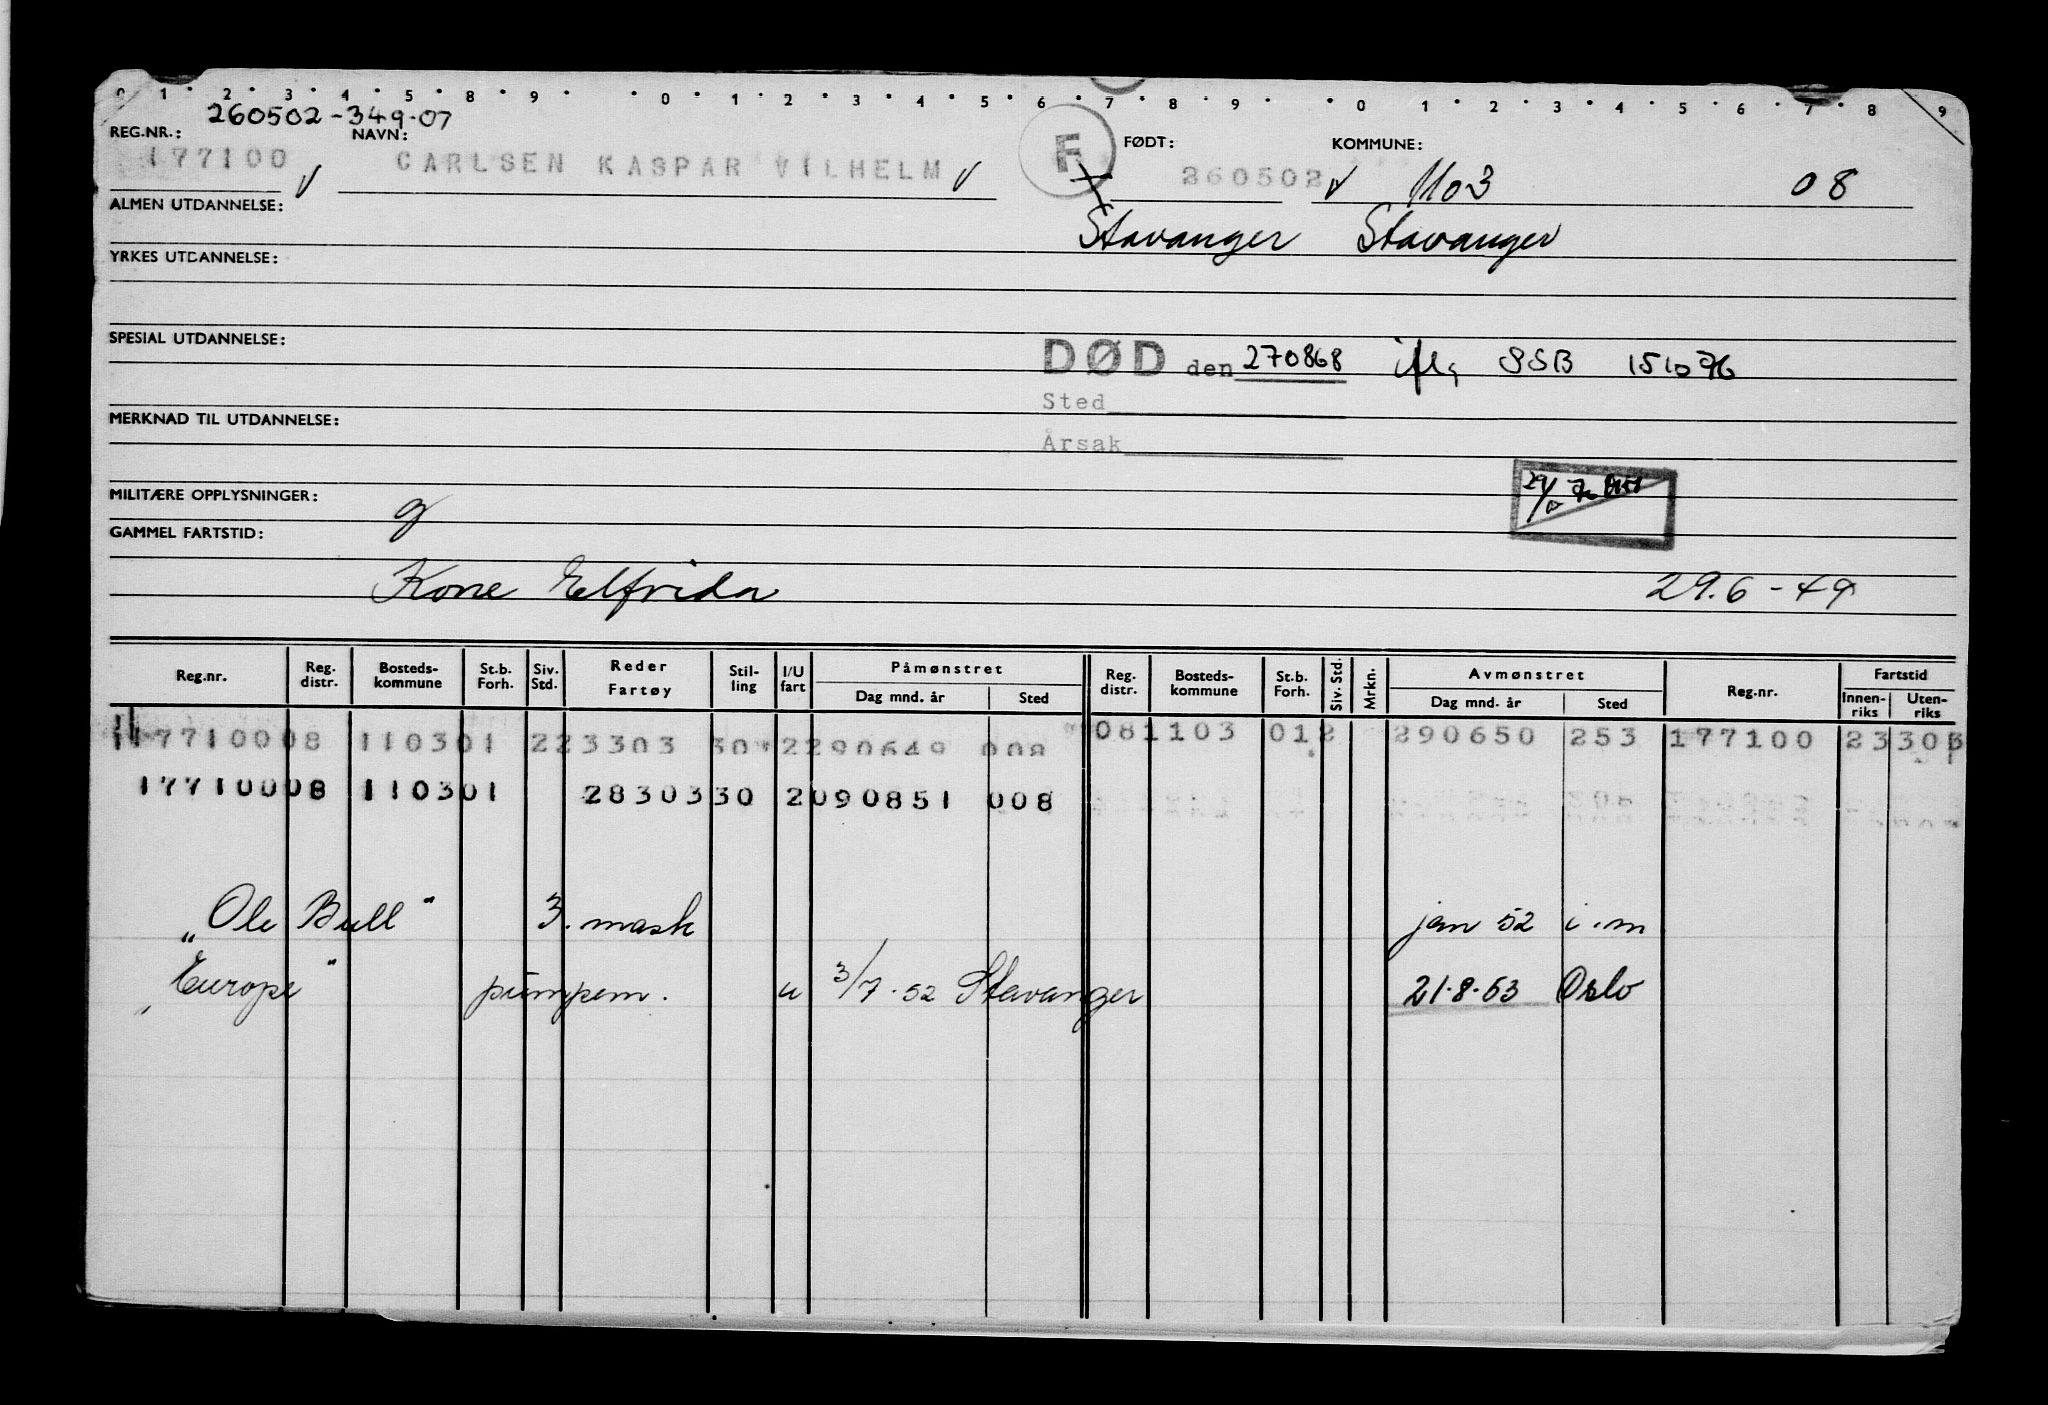 0 1 2 3 4 5 8 9 0 1 2 3 4 5 6 7 8 9 0 1 2 3 4 5 6 7 8 9
260502-349-07
REG.NR.: NAVN: FØDT: KOMMUNE:
177100 CARLSEN KASPAR VILHELM F 260502 1103 08
ALMEN UTDANNELSE: Stavanger Stavanger
YRKES UTDANNELSE:
SPESIAL UTDANNELSE:
DØD den 270868 iflg SSB 151076
Sted
MERKNAD TIL UTDANNELSE:
Årsak
MILITÆRE OPPLYSNINGER: g
GAMMEL FARTSTID:
Kone Elfrida 29.6-49
Reg.nr. Reg. distr. Bosteds-kommune St.b. Forh. Siv. Std. Reder Fartøy Stil-ling I/U fart Påmønstret Dag mnd. år Sted Reg. distr. Bosteds-kommune St.b. Forh. Siv. Std. Mrkn. Avmønstret Dag mnd. år Sted Reg.nr. Fartstid Innen-riks Uten-riks
177100 08 1103 01 2 23303 30 2 290649 008 08 1103 01 2 290650 253 177100
177100 08 1103 01 28303 30 2 090851 008
„Ole Bull" 3. mask jan 52 i.m
„Europe" pumpem. u 3/7.52 Stavanger 21.8.63 Oslo